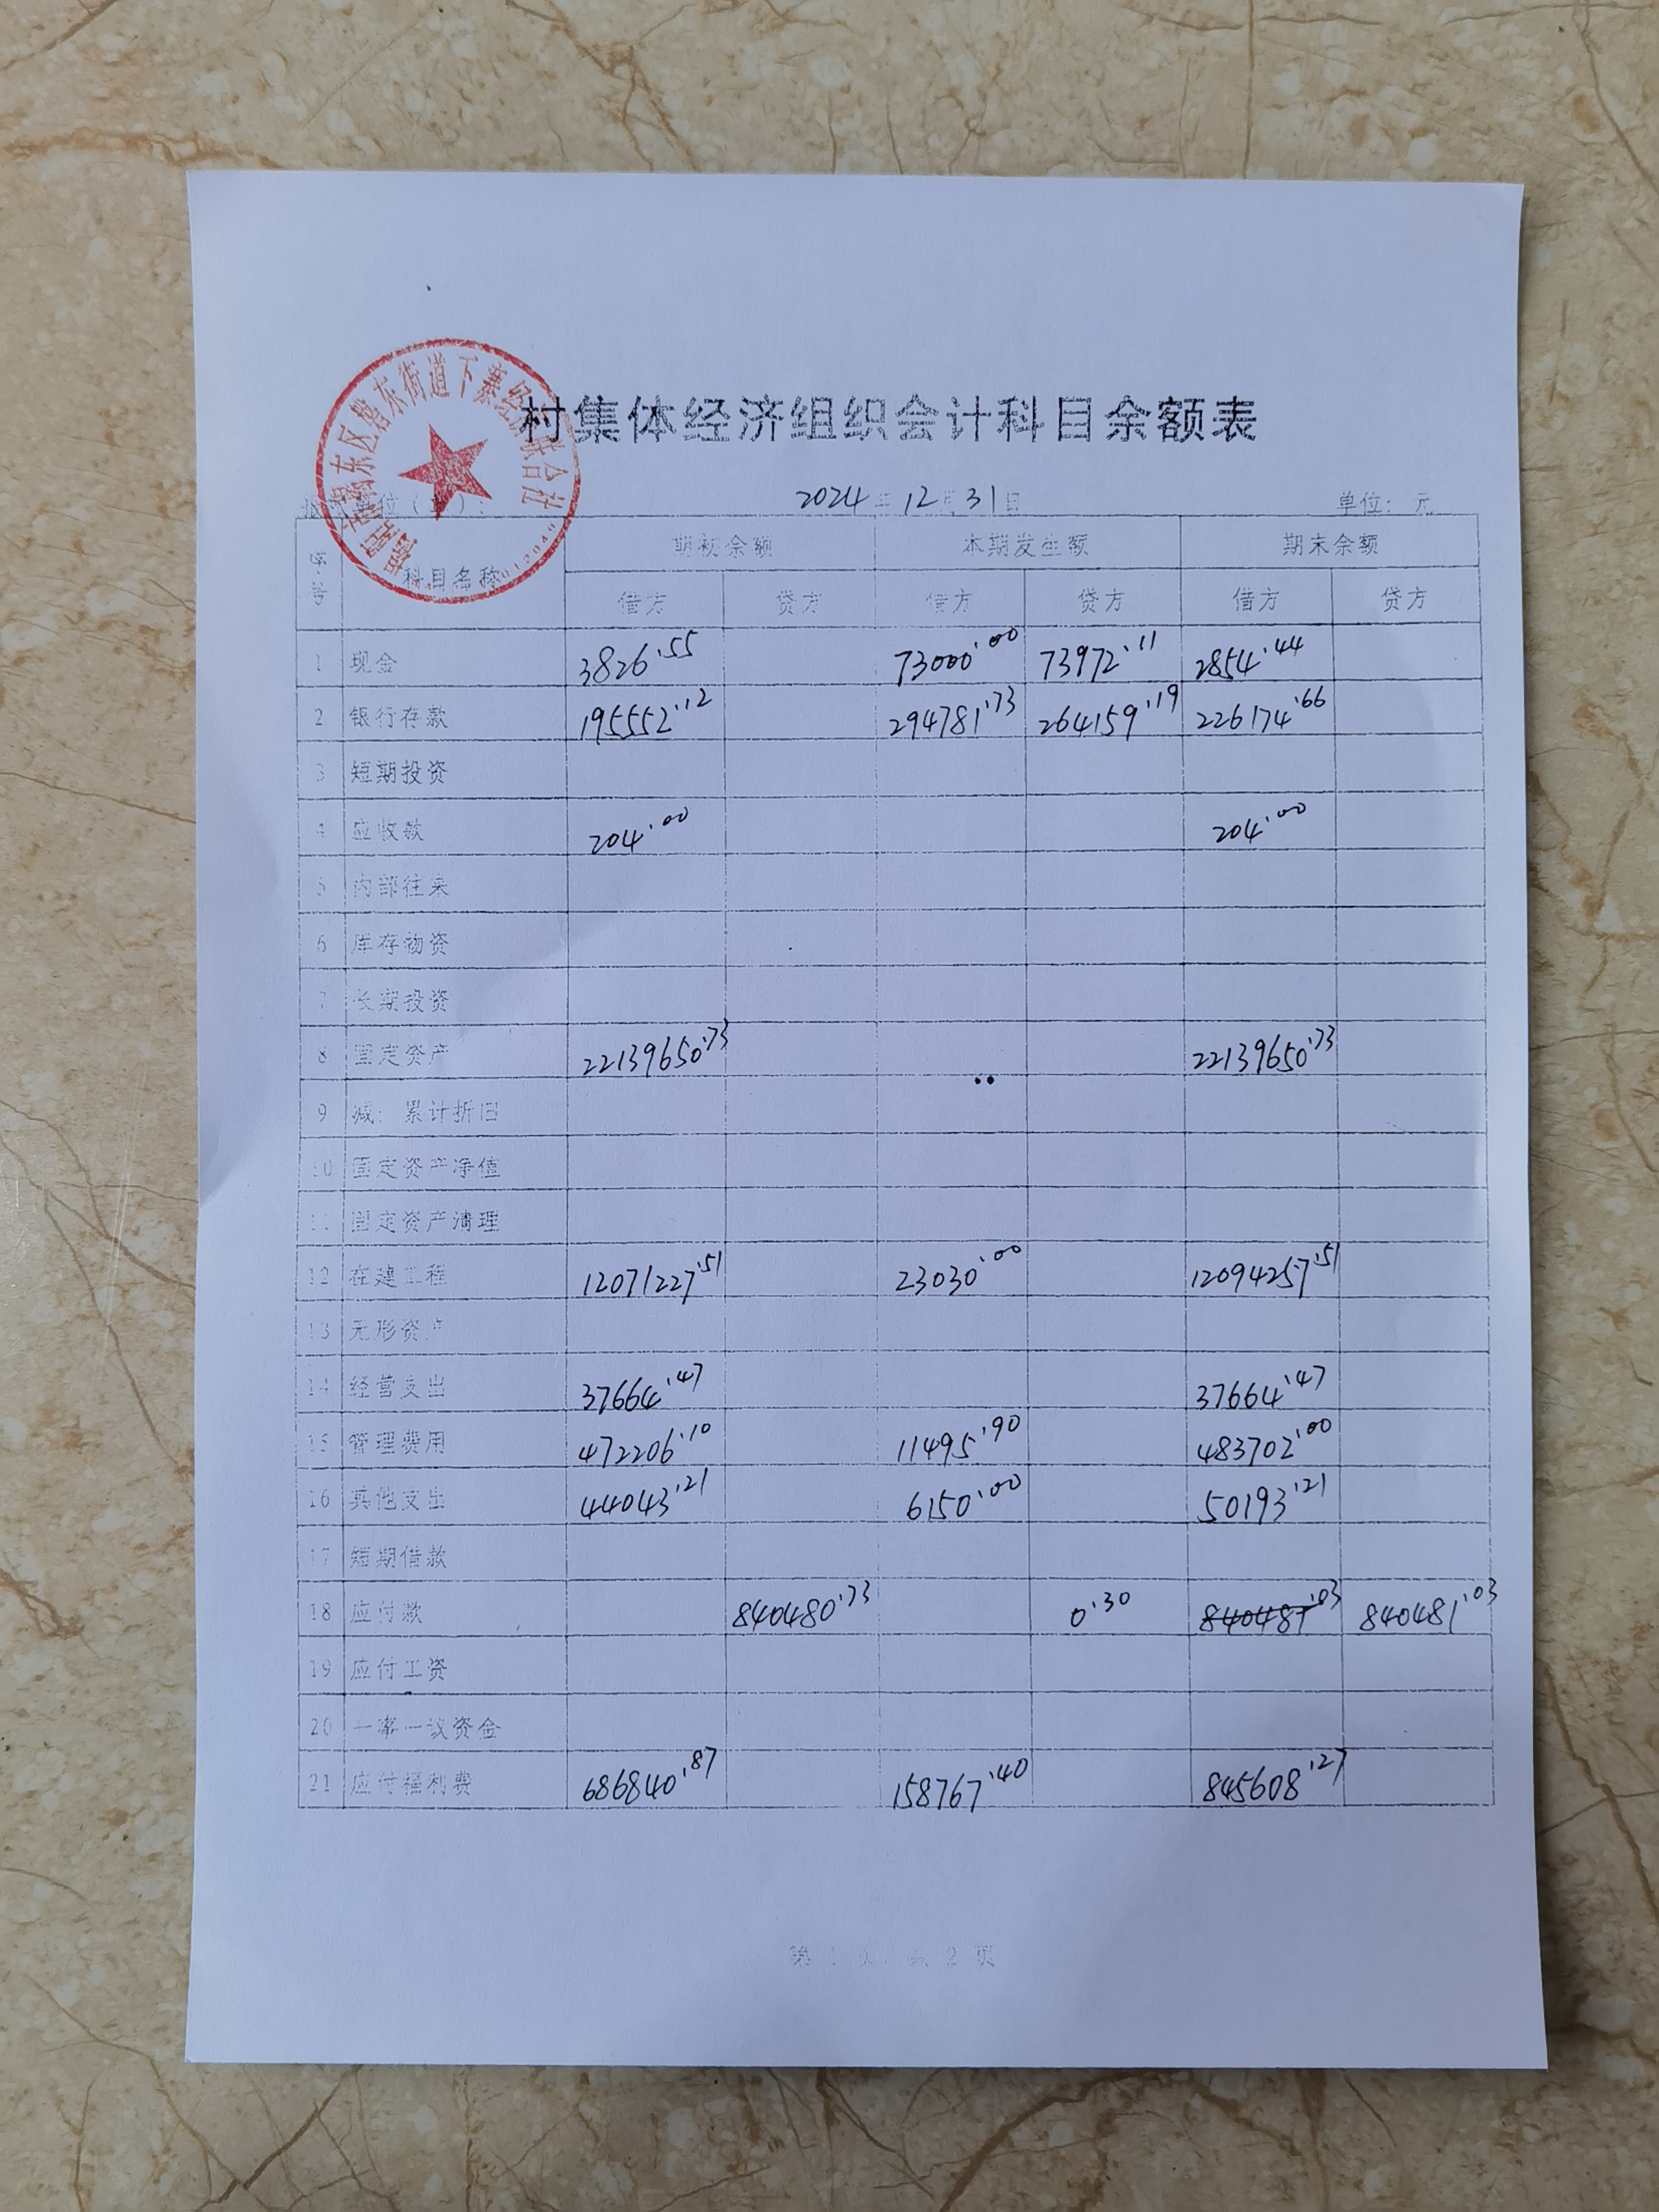 揭阳市揭东区磐东街道下寨经济联合社
村集体经济组织会计科目余额表
单位(盖): 2024年12月31日 单位: 元
序号 科目名称 期初余额 本期发生额 期末余额
借方 贷方 借方 贷方 借方 贷方
1 现金 3826.55 73000.00 73972.11 2854.44
2 银行存款 195552.12 294781.73 264159.19 226174.66
3 短期投资
4 应收款 204.00 204.00
5 内部往来
6 库存物资
7 长期投资
8 固定资产 22139650.73 22139650.73
9 减: 累计折旧
10 固定资产净值
11 固定资产清理
12 在建工程 12071227.51 23030.00 12094257.51
13 无形资产
14 经营支出 37664.47 37664.47
15 管理费用 472206.10 11495.90 483702.00
16 其他支出 44043.21 6150.00 50193.21
17 短期借款
18 应付款 840480.73 0.30 840481.03 840481.03
19 应付工资
20 一事一议资金
21 应付福利费 686840.87 158767.40 845608.27
第 1 页, 共 2 页